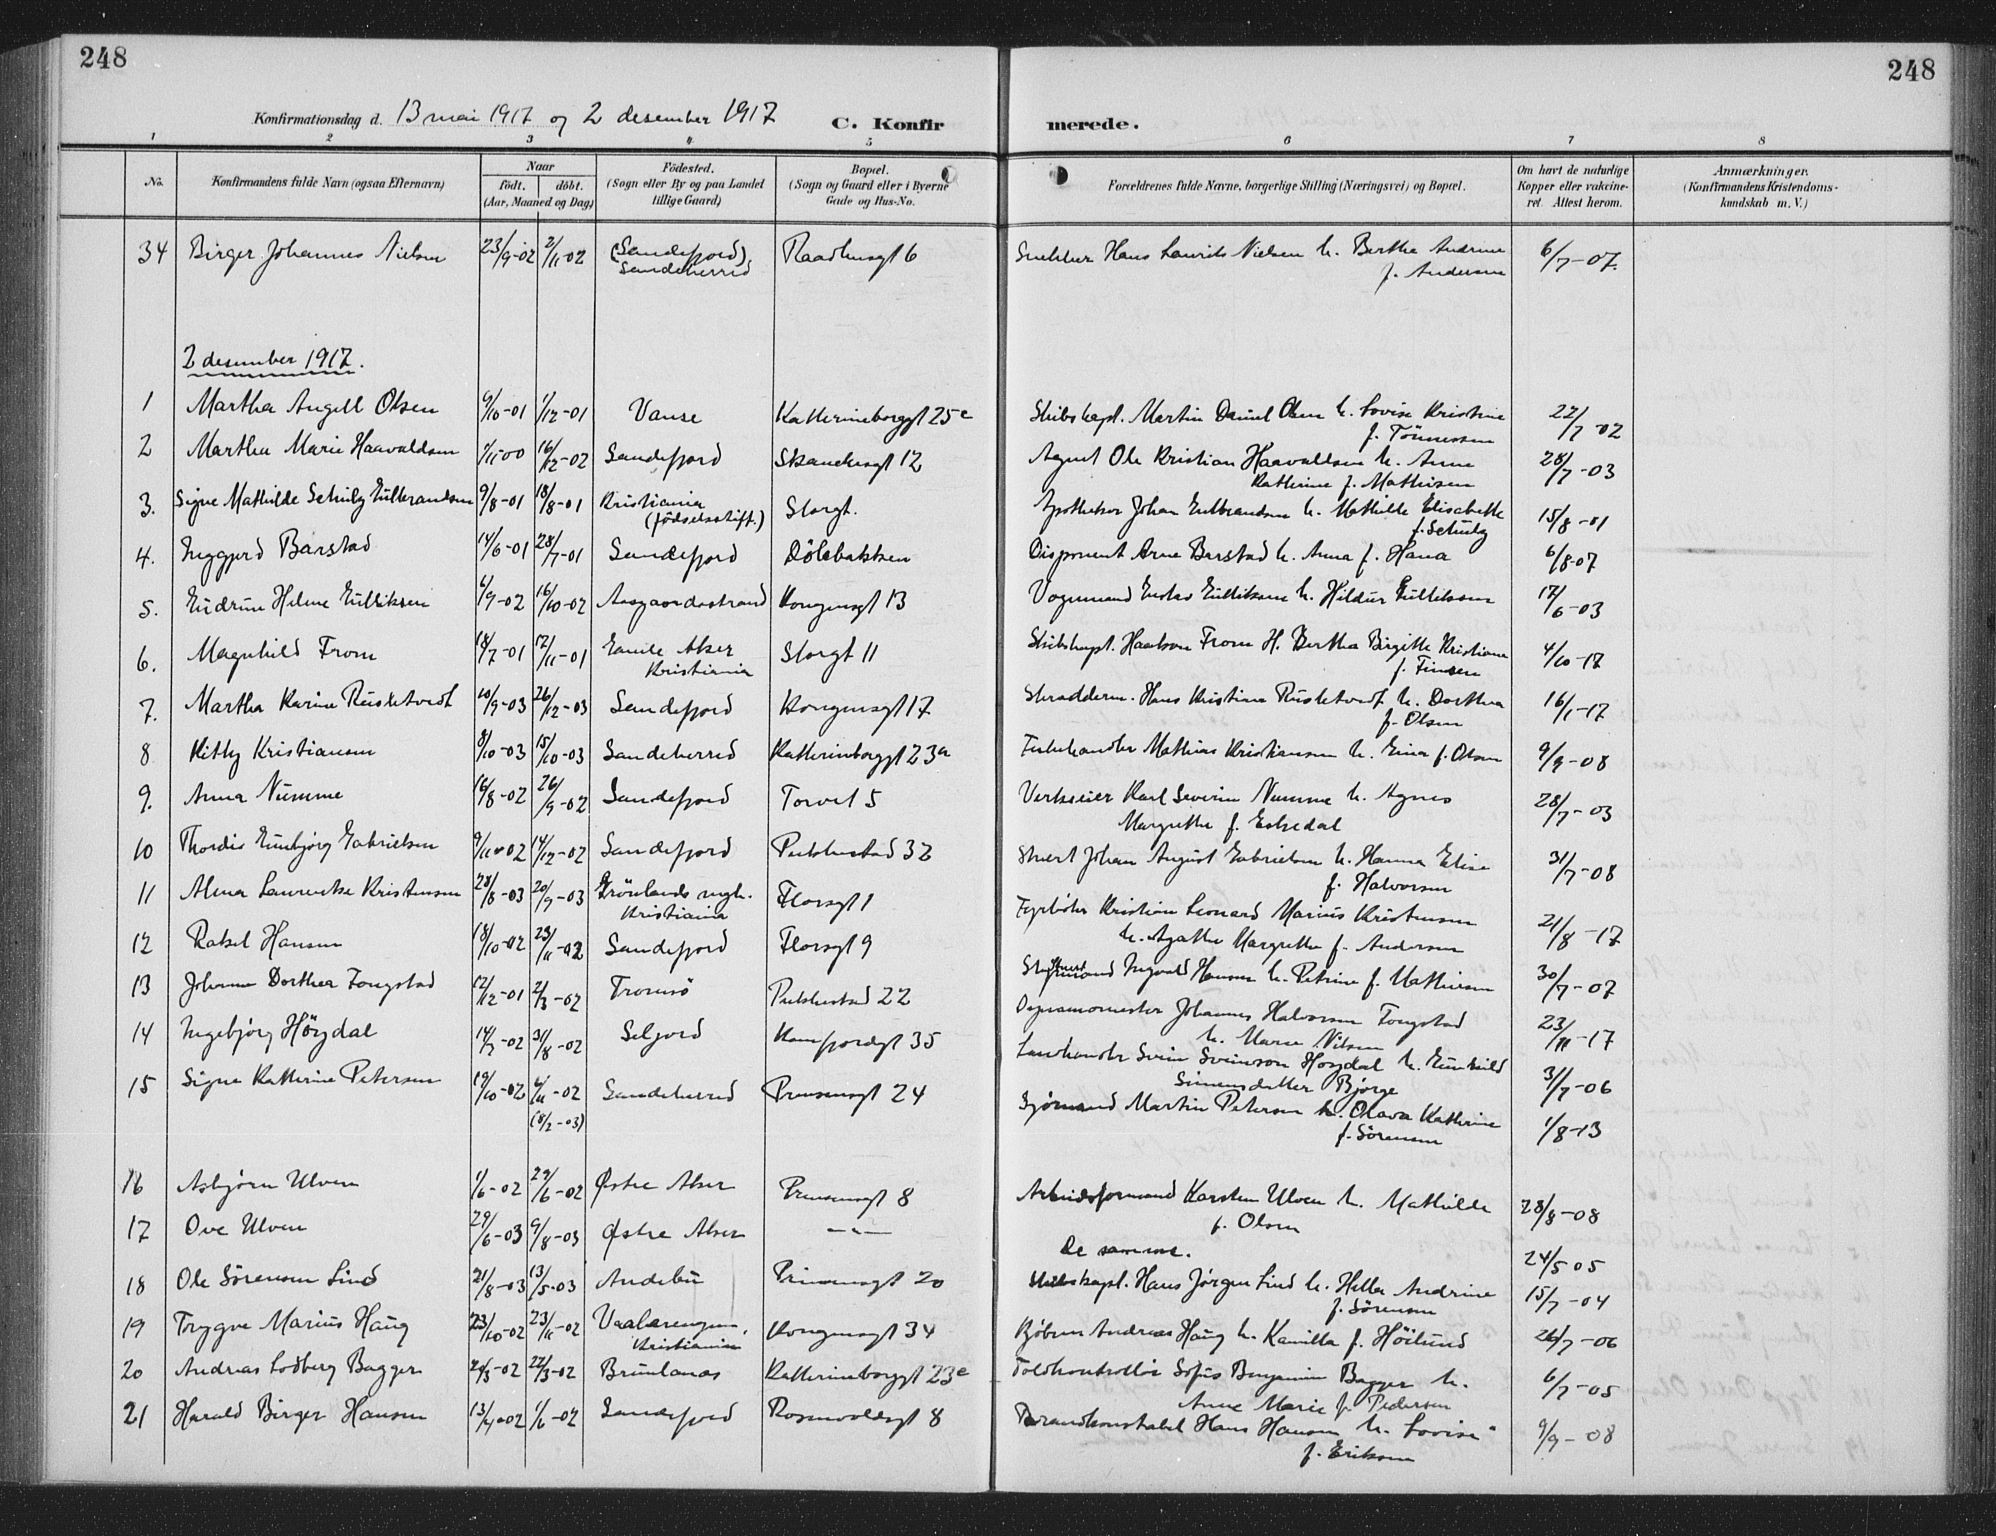 248
248
Konfirmationsdag d. 13 mai 1917 og 2 desember 1917
C. Konfir merede.
1 2 3 4 5 6 7 8
No.
Konfirmandens fulde Navn (ogsaa Efternavn)
Naar
födt. döbt.
(Aar, Maaned og Dag)
Födested.
(Sogn eller By og paa Landet
tillige Gaard)
Bopæl.
(Sogn og Gaard eller i Byerne
Gade og Hus-No.
Forældrenes fulde Navne, borgerlige Stilling (Næringsvei) og Bopæl.
Om havt de naturlige
Kopper eller vakcine-
ret. Attest herom.
Anmærkninger.
(Konfirmandens Kristendoms-
kundskab m. V.)
34 Birger Johannes Nielsen 23/9-02 2/11-02 (Sandefjord) Raadhusgt 6 Snekker Hans Laurits Nielsen h. Bertha Andrine 6/7-07.
Sandeherred f. Andersen
2 desember 1917.
1 Martha Angell Olsen 9/10-01 1/12-01 Vanse Katherineborggt 25c Skibskapt. Martin Daniel Olsen h. Lovise Kristine 22/7-02
f. Tönnessen
2 Martha Marie Haavaldsen 1/11-00 16/12-02 Sandefjord 12 Agent Ole Kristian Haavaldsen h. Anne 28/7-03
Katherine f. Mathisen
3. Signe Mathilde Schulz Gulbrandsen 9/8-01 18/8-01 Kristiania Storgt. Apotheker Johan Gulbrandsen h. Mathilde Elisabeth 15/8-01
(födselsstift.) f. Schulz
4. Inggjerd Barstad 14/6-01 28/7-01 Sandefjord Dölebakken Disponent Arne Barstad h. Anna f. Hana 6/8-07
5. Gudrun Helene Gulliksen 6/9-02 16/10-02 Aasgaardsstrand Kongensgt 13 Vognmand Gulliksen h. Hildur Gulliksen 17/6-03
6. Magnhild From 18/7-01 17/11-01 Gamle Aker Storgt 11 Skibskapt. Haakon From h. Bertha Birgitte Kristiane 4/10-17
Kristiania f. Finsen
7. Martha Karine Rusletvedt 10/9-03 26/12-03 Sandefjord Kongensgt 17 Skredderm. Hans Kristian Rusletvedt h. Dorthea 16/1-17
f. Olsen
8 Kitty Kristiansen 8/10-03 15/10-03 Sandeherred Katherineborggt 23a Mathias Kristiansen h. Eina f. Olsen 9/9-08
9. Anna Numme 16/8-02 26/9-02 Sandefjord Torvet 5 Verkseier Karl Severin Numme h. Agnes 28/7-03
Margrethe f. Eskedal
10 Thordis Gunbjörg Gabrielsen 9/11-02 14/12-02 Sandefjord Pukkestad 32 Stuert Johan August Gabrielsen h. Hanna Elise 31/7-08
f. Halvorsen
11 Alma Kristensen 28/8-03 20/9-03 Grönlands mgh. Florsgt 1 Fyrböter Kristian Leonard Marius Kristensen 21/8-17
Kristiania h. Agathe Margrethe f. Andersen
12 Rakel Hansen 18/10-02 23/11-02 Sandefjord Florsgt 9 Ingvald Hansen h. Petrine f. Mathisen 30/7-07
13 Johanne Dorthea Fongstad 12/12-01 2/3-02 Tromsö Pukkestad 22 Johannes Halvorsen Fongstad 23/11-17
h. Marie Nilsen
14 Ingebjörg Höydal 14/7-02 31/8-02 Seljord Kamfjordgt 35 Landhandler Svein Sveinson Höydal h. Gunhild 31/7-06
Simonsdatter Bjørge
15 Signe Katherine Petersen 19/10-02 6/11-02 Sandeherred Prinsensgt 24 Sjömand Martin Petersen h. Olava Katherine 1/8-13
(8/2-03) f. Sörensen
16 Asbjörn Ulven 1/6-02 29/6-02 Østre Aker Prinsensgt 8 Arbeidsformand Karsten Ulven h. Mathilde 28/8-08
f. Olsen
17 Ove Ulven 29/6-03 9/8-03 Østre Aker —"— De samme. 24/5 05
18 Ole Sörensen Lind 21/8-03 13/5-03 Andebu Prinsensgt 20 Skibskapt. Hans Jörgen Lind h. Helle Andrine 15/7-04
f. Sörensen
19 Trygve Marius Haug 23/10-02 23/11-02 Vaalerengen, Kongensgt 34 Andreas Haug h. Kamilla f. Höilund 26/7-06
Kristiania
20 Andreas Lodberg Bagger 20/3-02 22/3-02 Brunlanes Katherineborggt 23c Toldkontrollör Sofus Benjamin Bagger h. 6/7-05
Anne Marie f. Pedersen
21 Harald Birger Hansen 13/4-02 1/6-02 Sandefjord Rosenvoldsgt 8 Brandkonstabel Hans Hansen h. Lovise 9/9-08
f. Eriksen